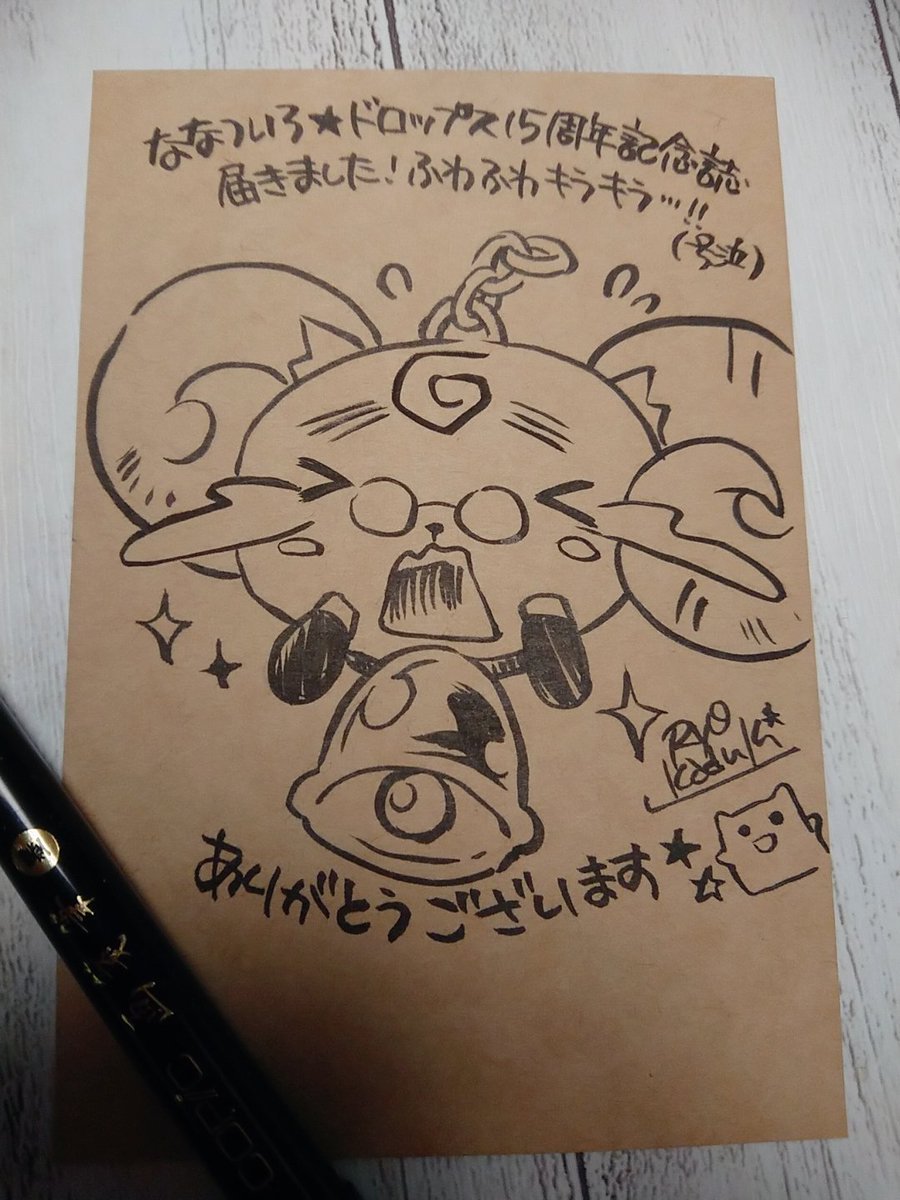 ななついろ★ドロップス15周年記念誌
届きました!ふわふわキラキラ…!!
(号泣)
Ryo
Kaduki*
ありがとうございます★☆